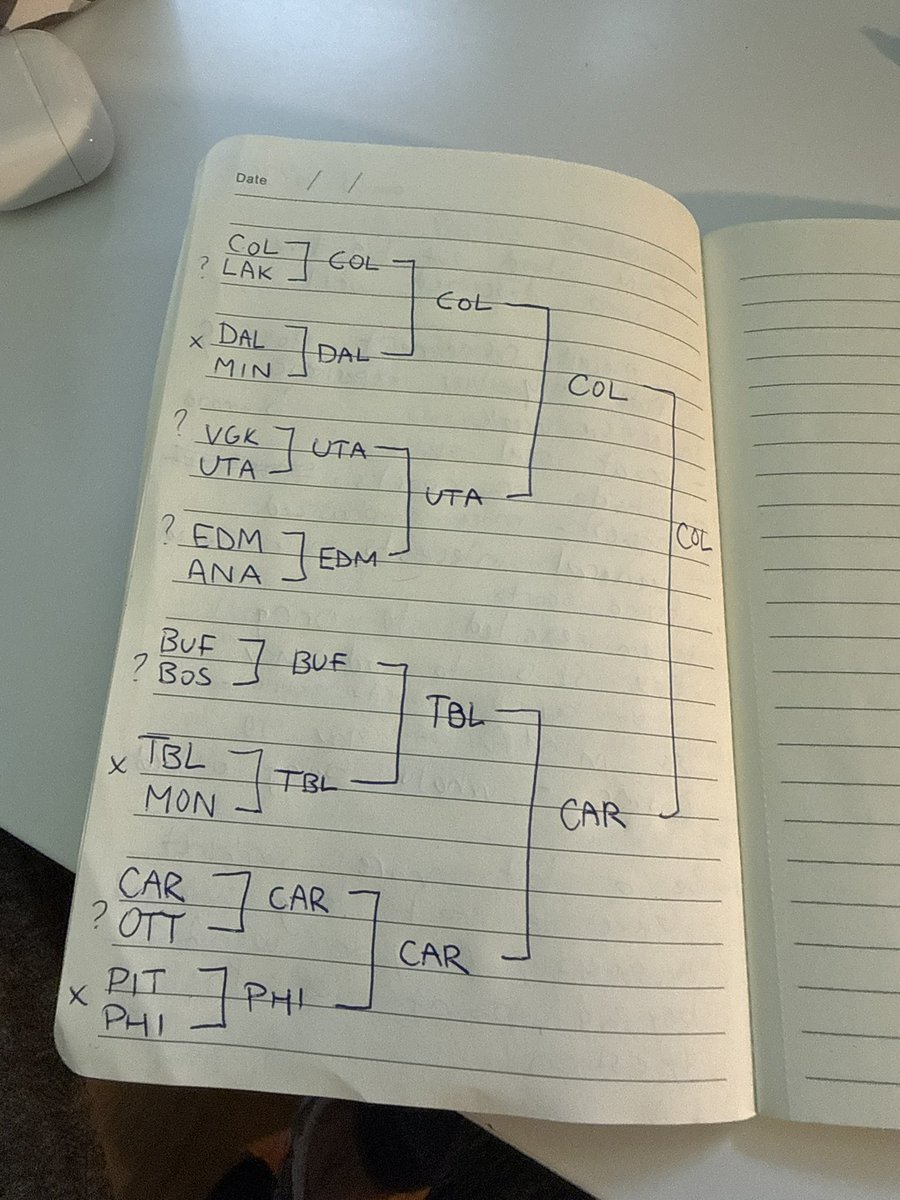 Date / /
COL
? LAK
COL
COL
x DAL
MIN
DAL
COL
? VGK
UTA
UTA
UTA
? EDM
ANA
EDM
COL
BUF
? BOS
BUF
TBL
x TBL
MON
TBL
CAR
CAR
? OTT
CAR
CAR
x PIT
PHI
PHI